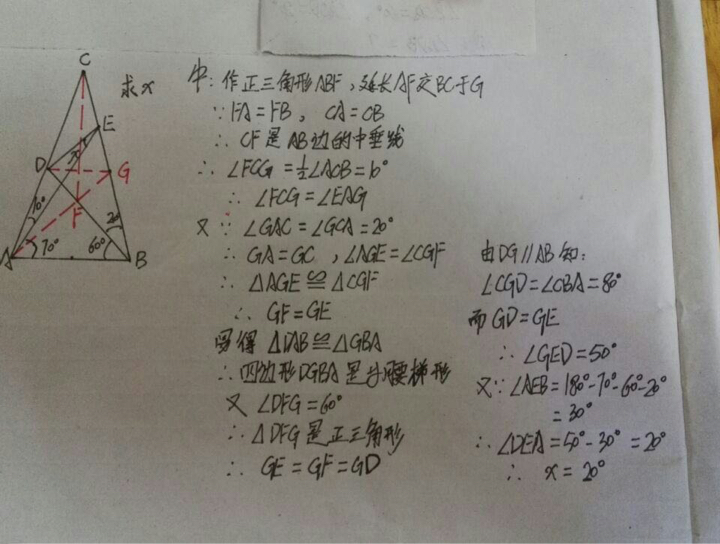 C
求x
E
D
G
x
F
10°
20
A
70°
60°
B
作正三角形ABF,延长AF交BC于G
∵ FA=FB, CA=CB
∴ CF是AB边的中垂线
∴ ∠FCG=½∠ACB=10°
∴ ∠FCG=∠EAG
又∵ ∠GAC=∠GCA=20°
∴ GA=GC,∠AGE=∠CGF
∴ △AGE≌△CGF
∴ GF=GE
易得 △DAB≌△GBA
∴四边形DGBA是等腰梯形
又 ∠DFG=60°
∴ △DFG是正三角形
∴ GE=GF=GD
由DG//AB知:
∠CGD=∠CBA=80°
而GD=GE
∴ ∠GED=50°
又∵ ∠AEB=180°-70°-60°-20°
=30°
∴ ∠DEA=50°-30°=20°
∴ x=20°